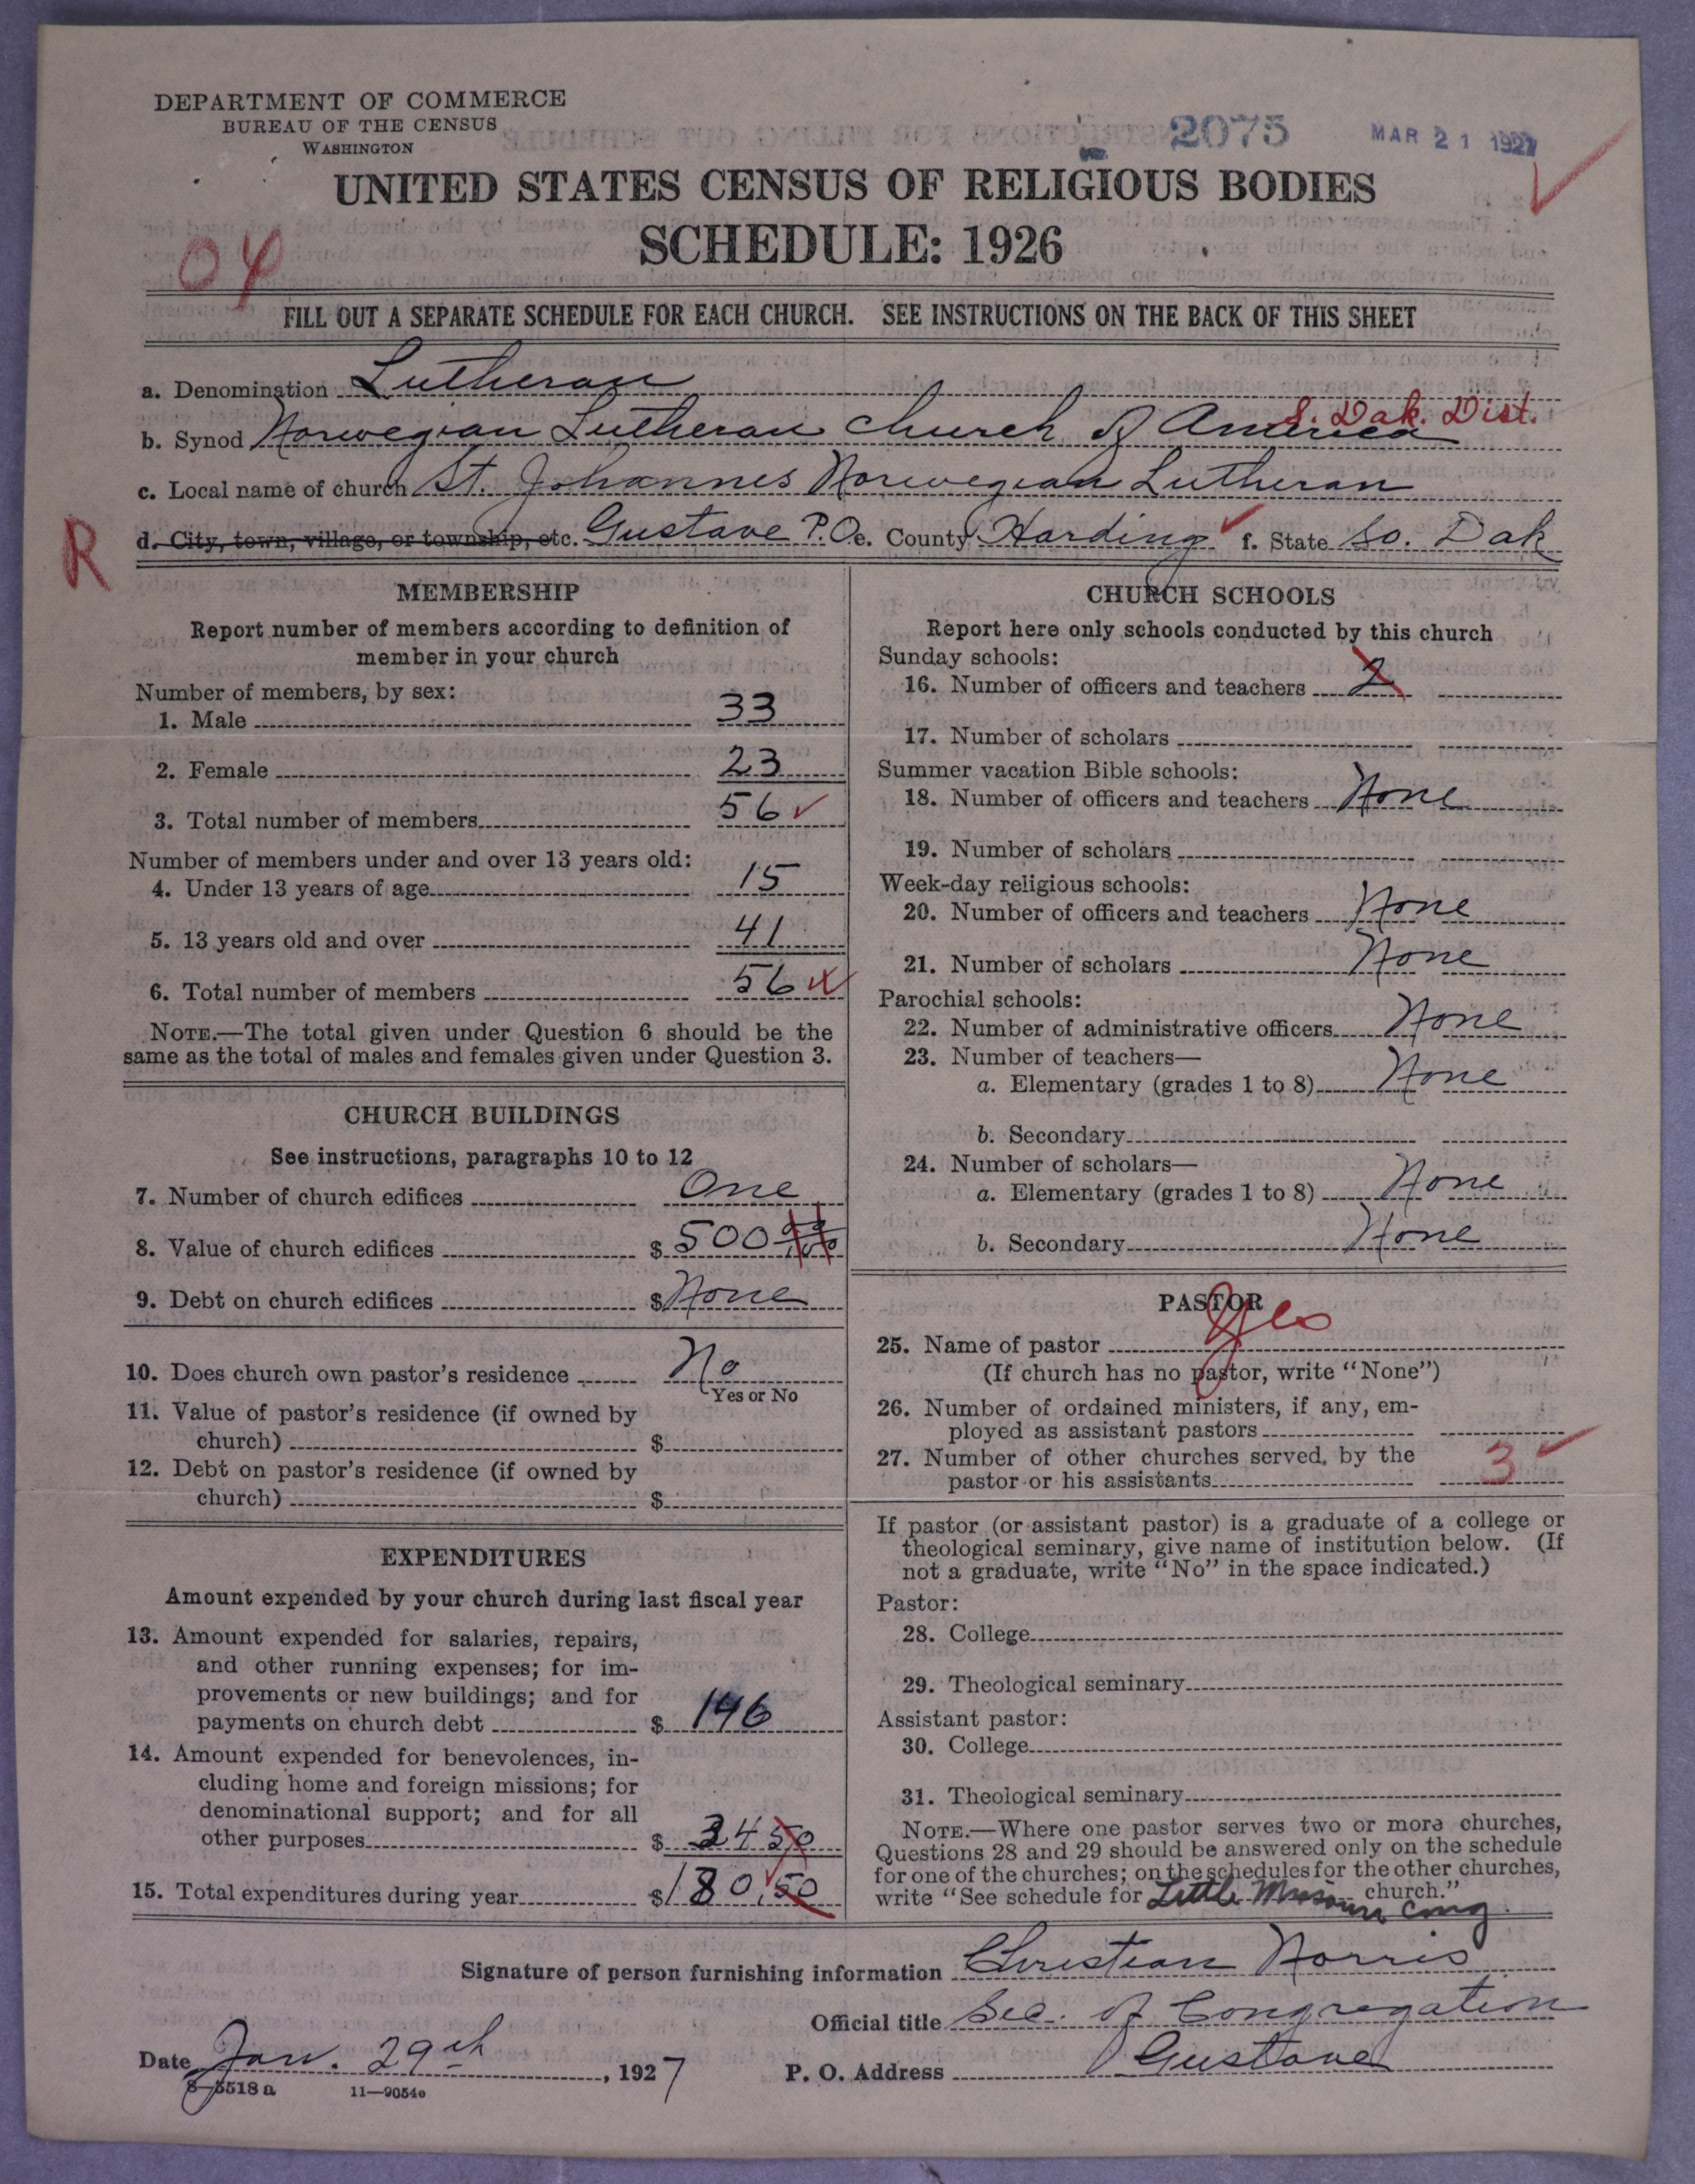 DEPARTMENT OF COMMERCE
BUREAU OF THE CENSUS
WASHINGTON
2075
MAR 21 1927
UNITED STATES CENSUS OF RELIGIOUS BODIES
SCHEDULE: 1926
04
FILL OUT A SEPARATE SCHEDULE FOR EACH CHURCH. SEE INSTRUCTIONS ON THE BACK OF THIS SHEET
a. Denomination Lutheran
S. Dak. Dist.
b. Synod Norwegian Lutheran Church of America
c. Local name of church St. Johannes Norwegian Lutheran
R
d. City, town, village, or township, etc. Gustave P.O. e. County Harding f. State So. Dak
MEMBERSHIP
Report number of members according to definition of
member in your church
Number of members, by sex:
1. Male 33
2. Female 23
3. Total number of members 56
Number of members under and over 13 years old:
4. Under 13 years of age 15
5. 13 years old and over 41
6. Total number of members 56
NOTE.—The total given under Question 6 should be the
same as the total of males and females given under Question 3.
CHURCH BUILDINGS
See instructions, paragraphs 10 to 12
7. Number of church edifices One
8. Value of church edifices $ 500
9. Debt on church edifices $ None
10. Does church own pastor's residence No
Yes or No
11. Value of pastor's residence (if owned by
church) $
12. Debt on pastor's residence (if owned by
church) $
EXPENDITURES
Amount expended by your church during last fiscal year
13. Amount expended for salaries, repairs,
and other running expenses; for im-
provements or new buildings; and for
payments on church debt $ 146
14. Amount expended for benevolences, in-
cluding home and foreign missions; for
denominational support; and for all
other purposes $ 34 50
15. Total expenditures during year $ 180.50
CHURCH SCHOOLS
Report here only schools conducted by this church
Sunday schools:
16. Number of officers and teachers 2
17. Number of scholars
Summer vacation Bible schools:
18. Number of officers and teachers None
19. Number of scholars
Week-day religious schools:
20. Number of officers and teachers None
21. Number of scholars None
Parochial schools:
22. Number of administrative officers None
23. Number of teachers—
a. Elementary (grades 1 to 8) None
b. Secondary
24. Number of scholars—
a. Elementary (grades 1 to 8) None
b. Secondary None
PASTOR
Yes
25. Name of pastor
(If church has no pastor, write "None")
26. Number of ordained ministers, if any, em-
ployed as assistant pastors
27. Number of other churches served by the
pastor or his assistants 3
If pastor (or assistant pastor) is a graduate of a college or
theological seminary, give name of institution below. (If
not a graduate, write "No" in the space indicated.)
Pastor:
28. College
29. Theological seminary
Assistant pastor:
30. College
31. Theological seminary
NOTE.—Where one pastor serves two or more churches,
Questions 28 and 29 should be answered only on the schedule
for one of the churches; on the schedules for the other churches,
write "See schedule for Little Missouri Cong. church."
Signature of person furnishing information Christian Norris
Official title Sec. of Congregation
Date Jan. 29th, 1927
P. O. Address Gustave
8—5518 a 11—9054e